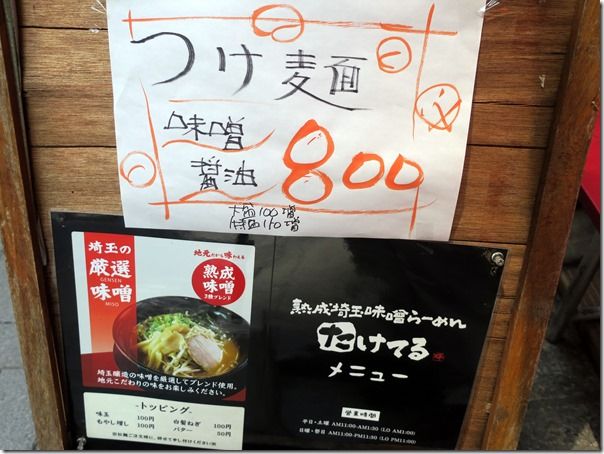 つけ麺
味噌
醤油
800
大盛100増
特盛150増
埼玉の
厳選
GENSEN
味噌
MISO
地元だから味わえる
熟成
味噌
3種ブレンド
埼玉醸造の味噌を厳選してブレンド使用。
地元こだわりの味をお楽しみください。
-トッピング-
味玉 100円 白髪ねぎ 100円
もやし増し 100円 バター 50円
熟成埼玉味噌らーめん
たけてる
メニュー
営業時間
平日・土曜 AM11:00-AM1:30 (LO AM1:00)
日曜・祭日 AM11:00-PM11:30 (LO PM11:00)